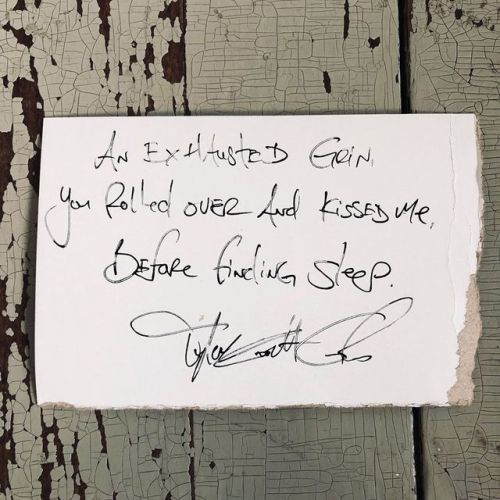 An Exhausted Grin,
You Rolled over And kissed me,
Before finding sleep.
Tyler Knott Gregson